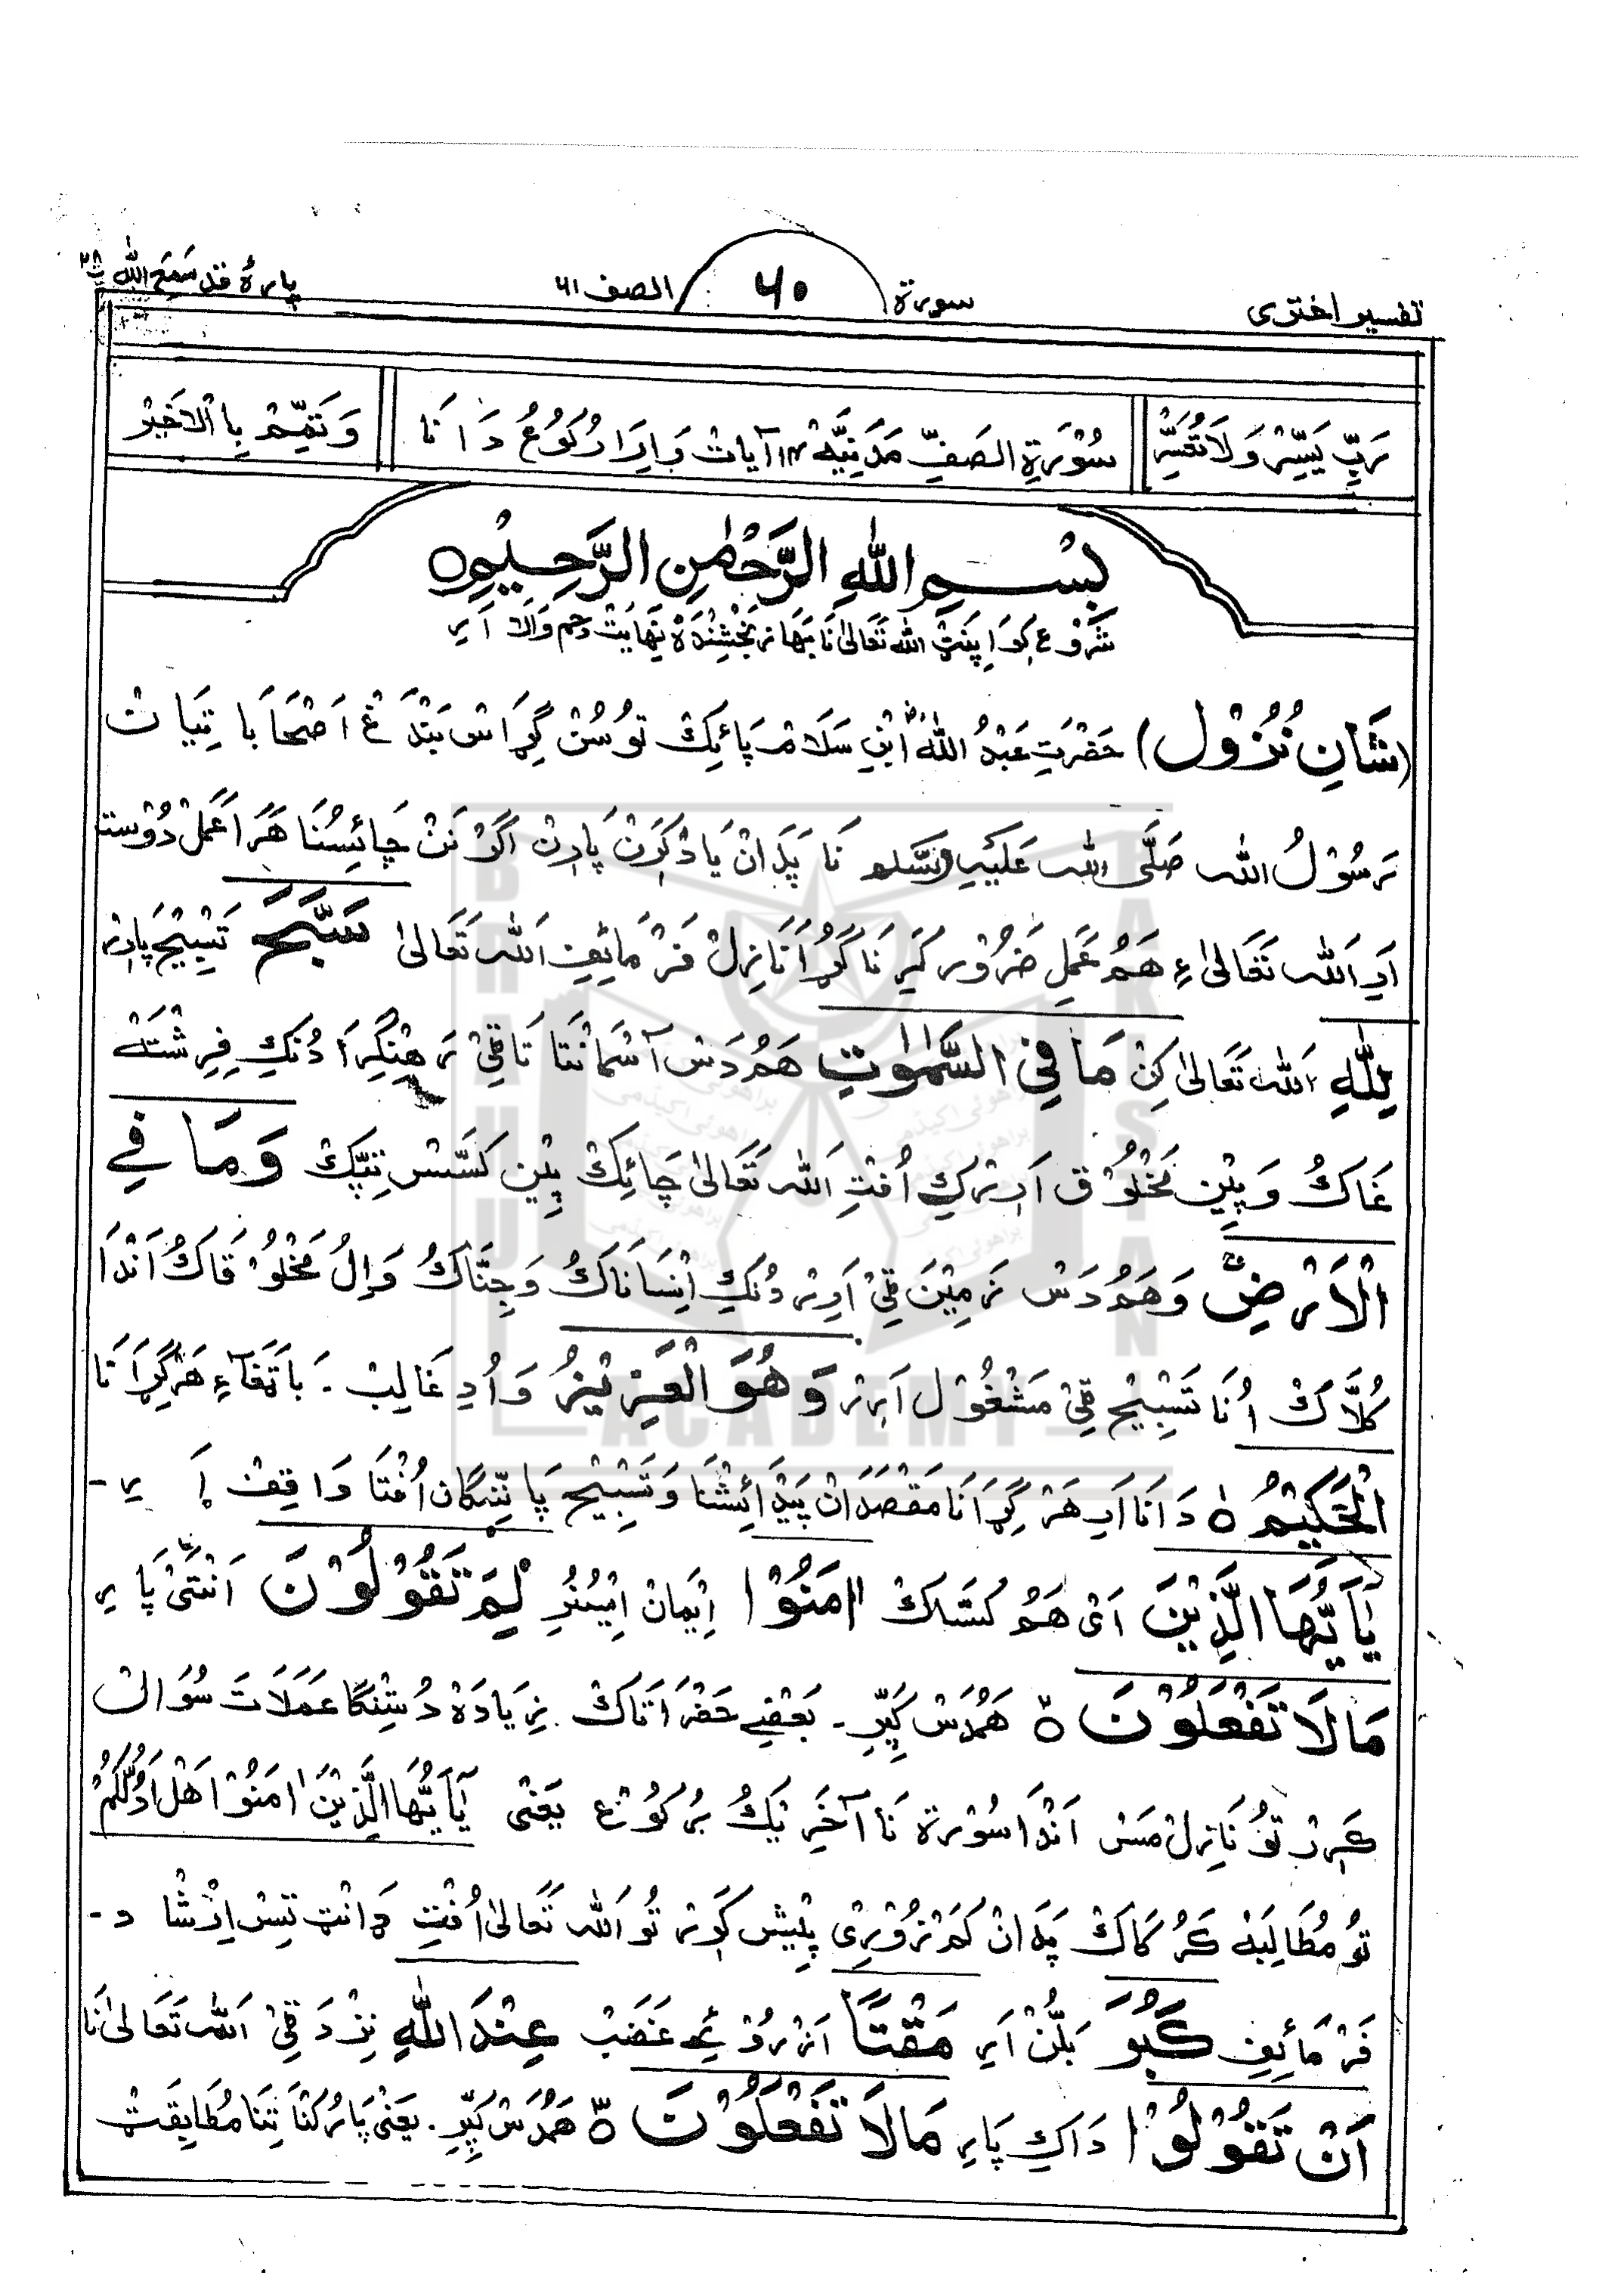 تفسیر اختری سورة ٦٠ الصف ٦١ پارۀ قد سَمِعَ اللّٰہ ۲۸
رَبِّ یَسِّرْ وَلَا تُعَسِّرْ سُوْرَةِ الصَفِّ مَدَنِیَّه ۱۴ آیات وَ اِرَا رُکُوْعُ دَا نَا وَ تَمِّمْ بِالْاَخَیْرْ
بِسْمِ اللّٰهِ الرَّحْمٰنِ الرَّحِيْمِ ○
شُرُوْع کِوَا پِنَتْ اللّٰه تَعَالیٰ نَا بَهَازْ بَخْشِنْدَہ نِهَایَتْ رحم وَالَا اَرِ
(شَانِ نُزُوْل) حَضْرَتِ عَبْدُ اللّٰهْ اِبْنِ سَلَامْ پَائِکْ تُوْسُنْ گِرَاسْ بَنْدَغْ اَصْحَابَاتِیَانْ
رَسُوْلُ اللّٰه صَلَّی اللّٰه عَلَیْہِ وَسَلَّم نَا پَدَانْ یَاد کَرَنْ پَارِنْ اَگَرْ نَنْ چَائِسُنَا هَرَا عَمَلْ دُوْست
اَرِ اَللّٰه تَعَالیٰ ءِ هَمُ عَمَلِ ضَرُوْر کَرِنَا گُڑَا نَازِلْ فَرْمَائِفِ اَللّٰه تَعَالیٰ سَبَّحَ تَسْبِیْح پَارِنْ
لِلّٰهِ اَللّٰه تَعَالیٰ کِنْ مَا فِی السَّمٰوٰتِ هَمُ دَسْ آسْمَانْتَا تَاقِیْ رَهِنْگِرَا دُنکِ فِرِشْتَہ
غَاکْ وَ پِیْن مَخْلُوْق اَرِزکِ اُفْتِ اَللّٰه تَعَالیٰ چَائِکْ پِیْن کَسَّسْ نِپَّکْ وَمَا فِي
الْاَرْضِ ۚ وَهَمُ دَسْ زَمِیْنَ قِیْ اَرِزْ دُنکِ اِنْسَانَاکْ وَ جِنَّاکْ وَ اِلُ مَخْلُوْقَاکْ اَنْدَا
کُلَّاکْ اُنَا تَسْبِیْح قِیْ مَشْغُوْل اَرِزْ وَهُوَ الْعَزِيْزُ وَ اُدِ غَالِبْ ۔ بَا تَفَآءِ هَرْگِرَانَا
الْحَكِيْمُ ○ دَانَا اَرِ هَرْ گِرَانَا مَقْصَدَانْ پَیْدَائِشْنَا وَ تَسْبِیْح پَانِنْگَان اُفْتَا وَاقِفْ اَرِ ۔
يٰۤاَيُّهَا الَّذِيْنَ اَیْ هَمُ کَسَّاکْ اٰمَنُوْا اِیْمَانْ اِیْسُنُرِ لِمَ تَقُوْلُوْنَ اَنْتَئْ پَارِ
مَا لَا تَفْعَلُوْنَ ○ هَمُدَسْ کَپِّرِ ۔ بَعْضِے حَضْرَاتَاکْ زِیَادَہ دُسْتِنْگَا عَمَلَاتَ سُوَالْ
کَرِرْ تُوْ نَازِلْ مَسْ اَنْدَا سُوْرَة نَا آخَرِیْکُ رُکُوْع یَعْنِی يٰۤاَيُّهَا الَّذِيْنَ اٰمَنُوْا هَلْ اَدُلُّكُمْ
تُو مُطَالِبَہ کَرُکَاکْ پَدَانْ کَمْزُوْرِی پِیْش کَرِرْ تُو اَللّٰه تَعَالیٰ اُفْتِ دَانْت تِسْ اِرْشَاد ۔
فَرْمَائِفِ كَبُرَ بَلُّنْ اَرِ مَقْتًا اَزْرُوْئِے غَضَبْ عِنْدَ اللّٰهِ نِزْدَ قِیْ اَللّٰه تَعَالیٰ نَا
اَنْ تَقُوْلُوْا دَاکِ پَارِ مَا لَا تَفْعَلُوْنَ ○ هَمُدَسْ کَپِّرِ ۔ یَعْنِی پَارُکْنَا تِنَا مُطَابِقَتْ